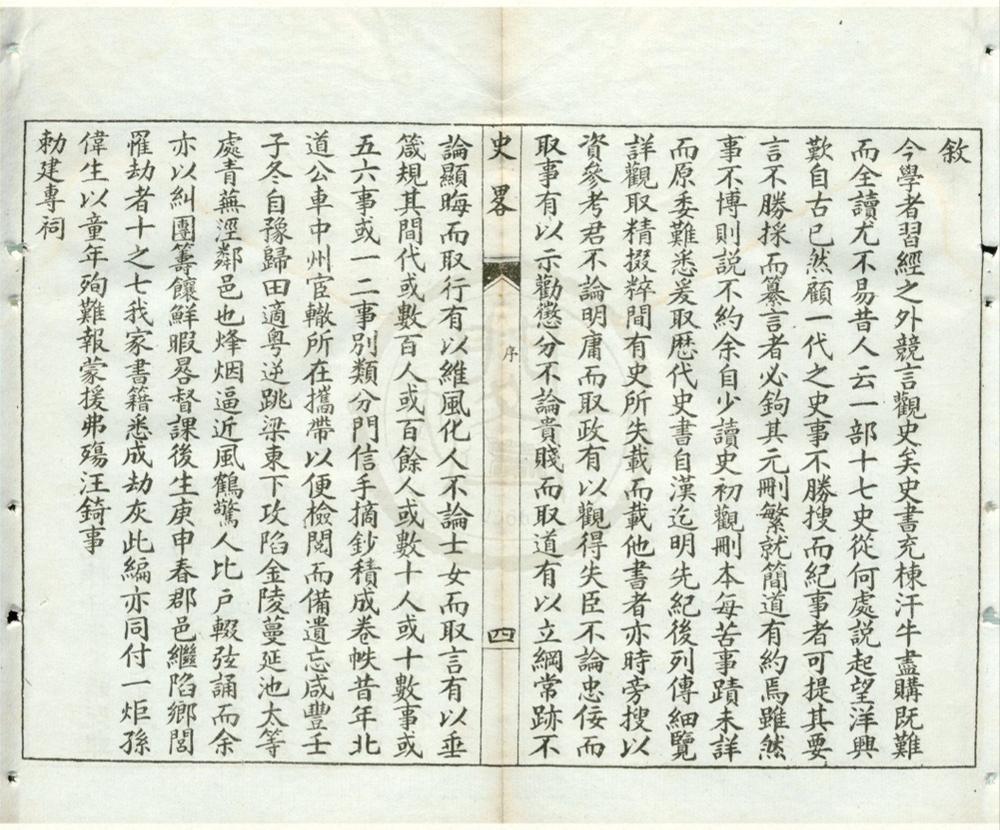 敘
今學者習經之外競言觀史矣史書充棟汗牛盡購既難
而全讀尤不易昔人云一部十七史從何處説起望洋興
歎自古已然顧一代之史事不勝搜而紀事者可提其要
言不勝採而纂言者必鉤其元刪繁就簡道有約焉雖然
事不博則説不約余自少讀史初觀刪本每苦事蹟未詳
而原委難悉爰取歴代史書自漢迄明先紀後列傳細覽
詳觀取精掇粹間有史所失載而載他書者亦時旁搜以
資參考君不論明庸而取政有以觀得失臣不論忠佞而
取事有以示勸懲分不論貴賤而取道有以立綱常跡不
史畧
序
四
論顯晦而取行有以維風化人不論士女而取言有以垂
箴規其間代或數百人或百餘人或數十人或十數事或
五六事或一二事別類分門信手摘鈔積成卷帙昔年北
道公車中州宦轍所在攜帶以便檢閱而備遺忘咸豐壬
子冬自豫歸田適粵逆跳梁東下攻陷金陵蔓延池太等
處青蕪涇鄰邑也烽烟逼近風鶴驚人比户輟弦誦而余
亦以糾團籌饟鮮暇晷督課後生庚申春郡邑繼陷鄉閭
罹劫者十之七我家書籍悉成劫灰此編亦同付一炬孫
偉生以童年殉難報蒙援弗殤汪錡事
勅建專祠